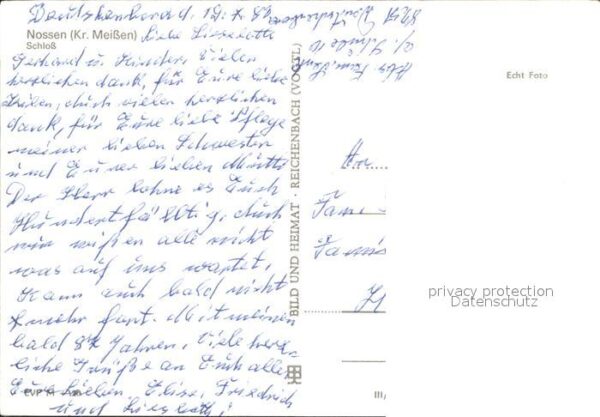 Deutschenbora d. 19. X. 83
Nossen (Kr. Meißen)
Schloß
Liebe Lieselotte
Gerhard u. Kinder! Vielen
herzlichen dank, für Eure liebe
Zeilen, duch vielen herzlichen
dank, für Eure liebe Pflege
meiner lieben Schwester
und Eurer lieben Mutti
Der Herr lohne es Euch
Hundertfälltig, duch
wir wißen alle nicht
was auf uns wartet,
Kann auch bald nicht
mehr fort. Mit meinen
bald 84 Jahren, Viele herz-
liche Grüße an Euch alle
Eure lieben Elise, Friedrich
und Lieselott!
EVP M
BILD UND HEIMAT · REICHENBACH (VOGTL)
Echt Foto
An
Fam.
privacy protection
Datenschutz
III/